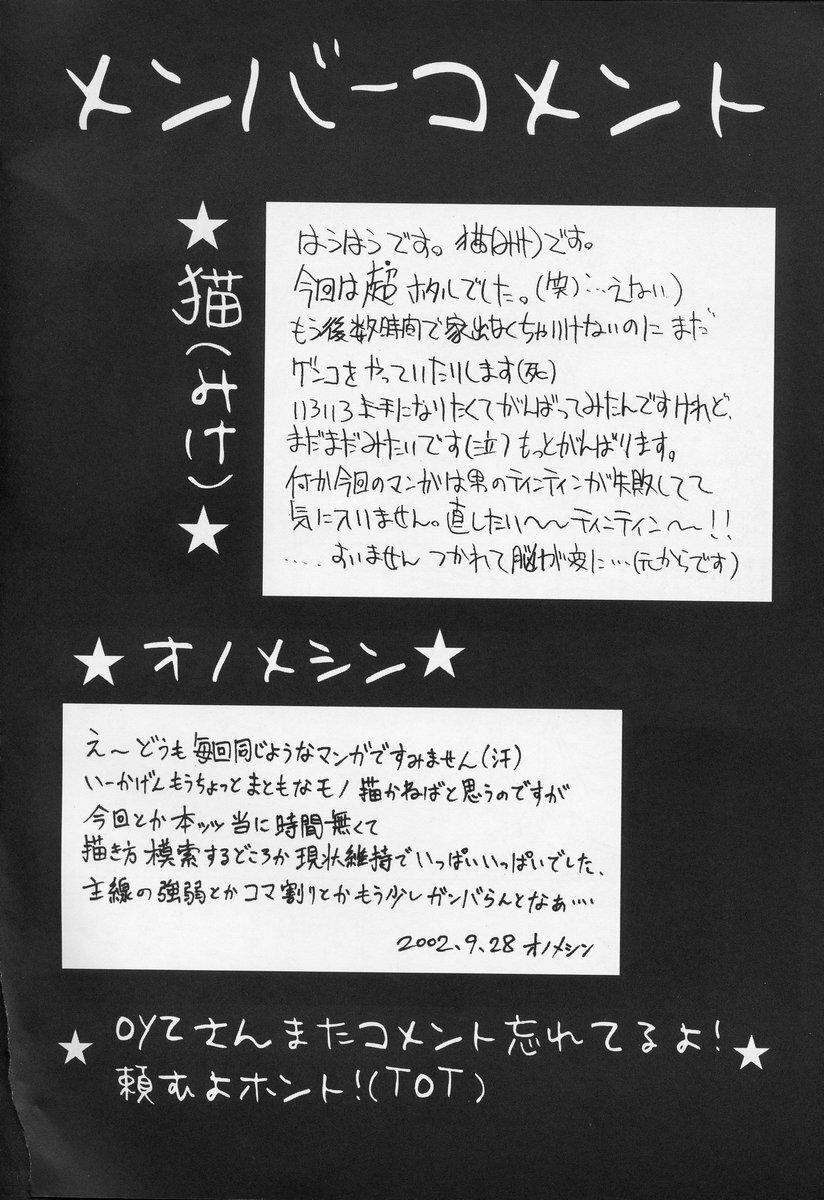 メンバーコメント
★猫(みけ)★
はうはうです。猫(みけ)です。
今回は超ホタルでした。(笑)…えない)
もう後数時間で家出なくちゃいけないのにまだ
ゲンコをやっていたりします(死)
いろいろ上手になりたくてがんばってみたんですけれど、
まだまだみたいです(泣)もっとがんばります。
何か今回のマンガは男のティンティンが失敗してて
気に入いません。直したい〜〜ティンティン〜〜!!
....すいません つかれて脳が変に…(元からです)
★オノメシン★
え〜どうも毎回同じようなマンガですみません(汗)
いーかげんもうちょっとまともなモノ描かねばと思うのですが
今回とか本ッッ当に時間無くて
描き方模索するどころか現状維持でいっぱいいっぱいでした、
主線の強弱とかコマ割りとかもう少しガンバらんとなぁ….
2002.9.28 オノメシン
★OYZさんまたコメント忘れてるよ!
頼むよホント!(TOT)★